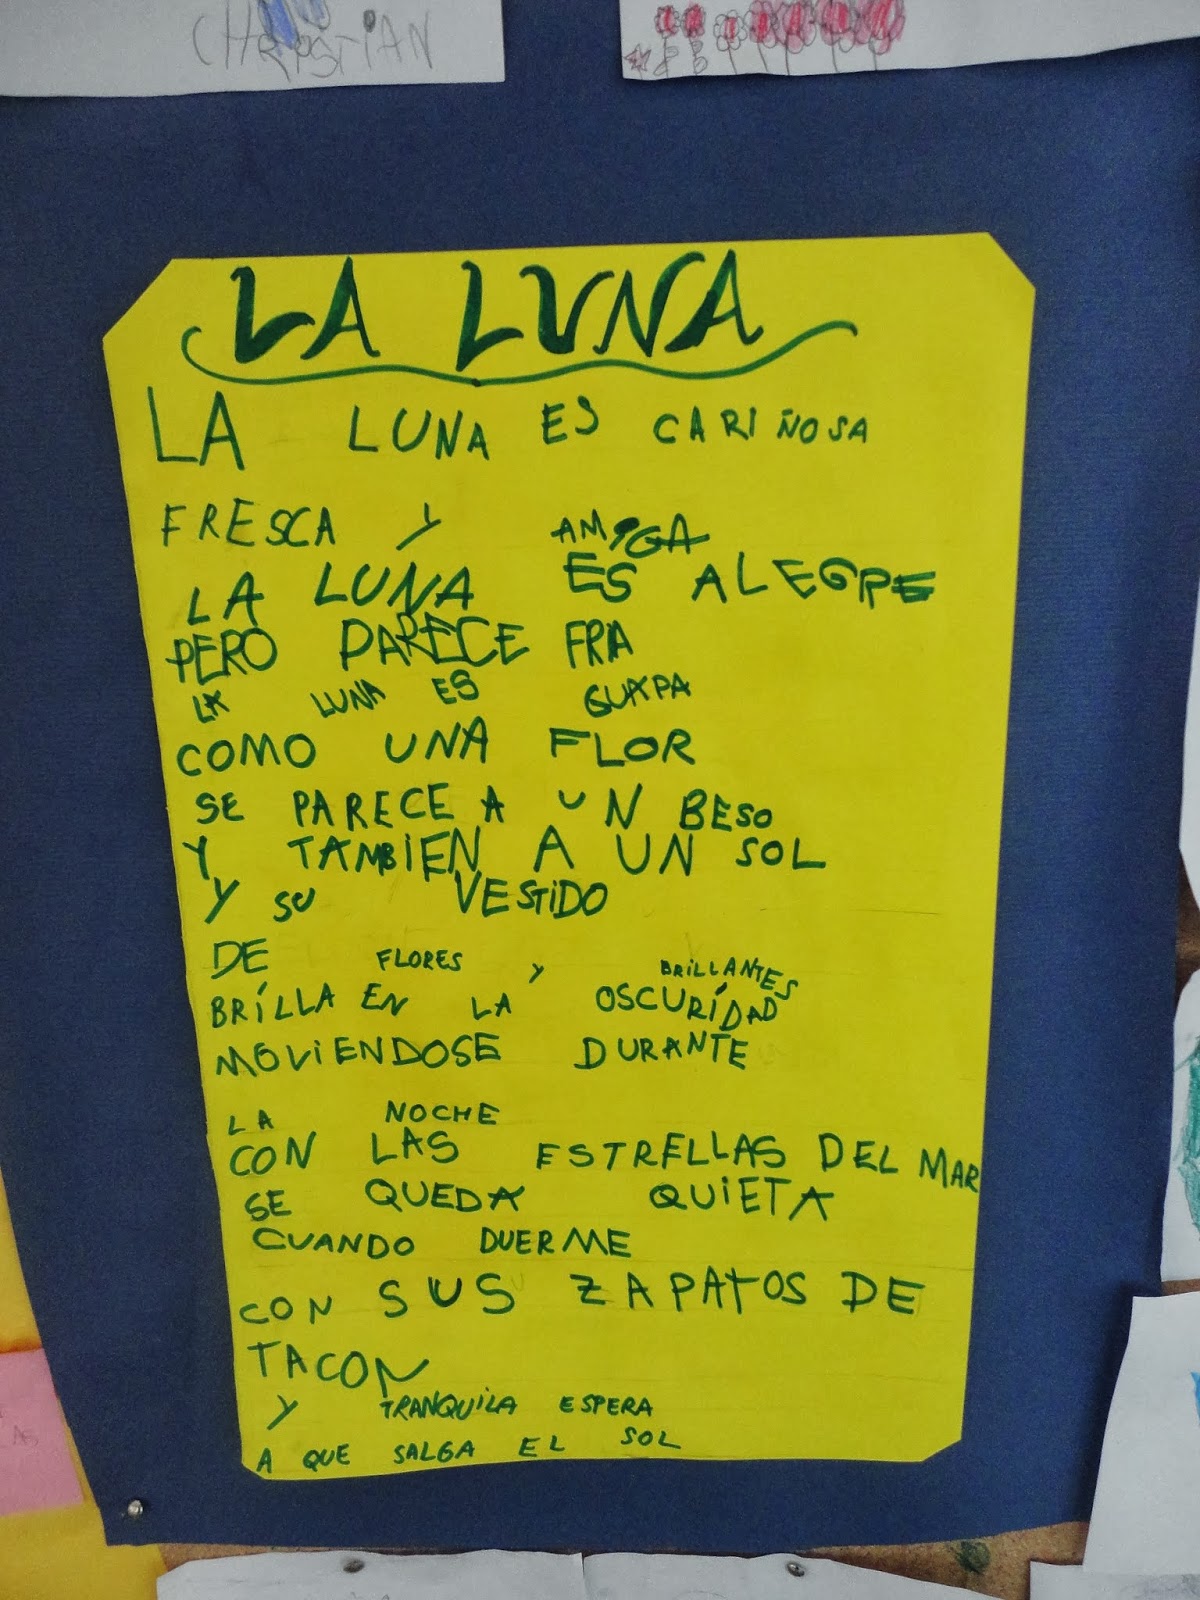 CHRISTIAN
LA LUNA
LA LUNA ES CARIÑOSA
FRESCA Y AMIGA
LA LUNA ES ALEGRE
PERO PARECE FRIA
LA LUNA ES GUAPA
COMO UNA FLOR
SE PARECE A UN BESO
Y TAMBIEN A UN SOL
Y SU VESTIDO
DE FLORES Y BRILLANTES
BRÍLLA EN LA OSCURÍDAD
MOVIENDOSE DURANTE
LA NOCHE
CON LAS ESTRELLAS DEL MAR
SE QUEDA QUIETA
CUANDO DUERME
CON SUS ZAPATOS DE
TACON
Y TRANQUILA ESPERA
A QUE SALGA EL SOL